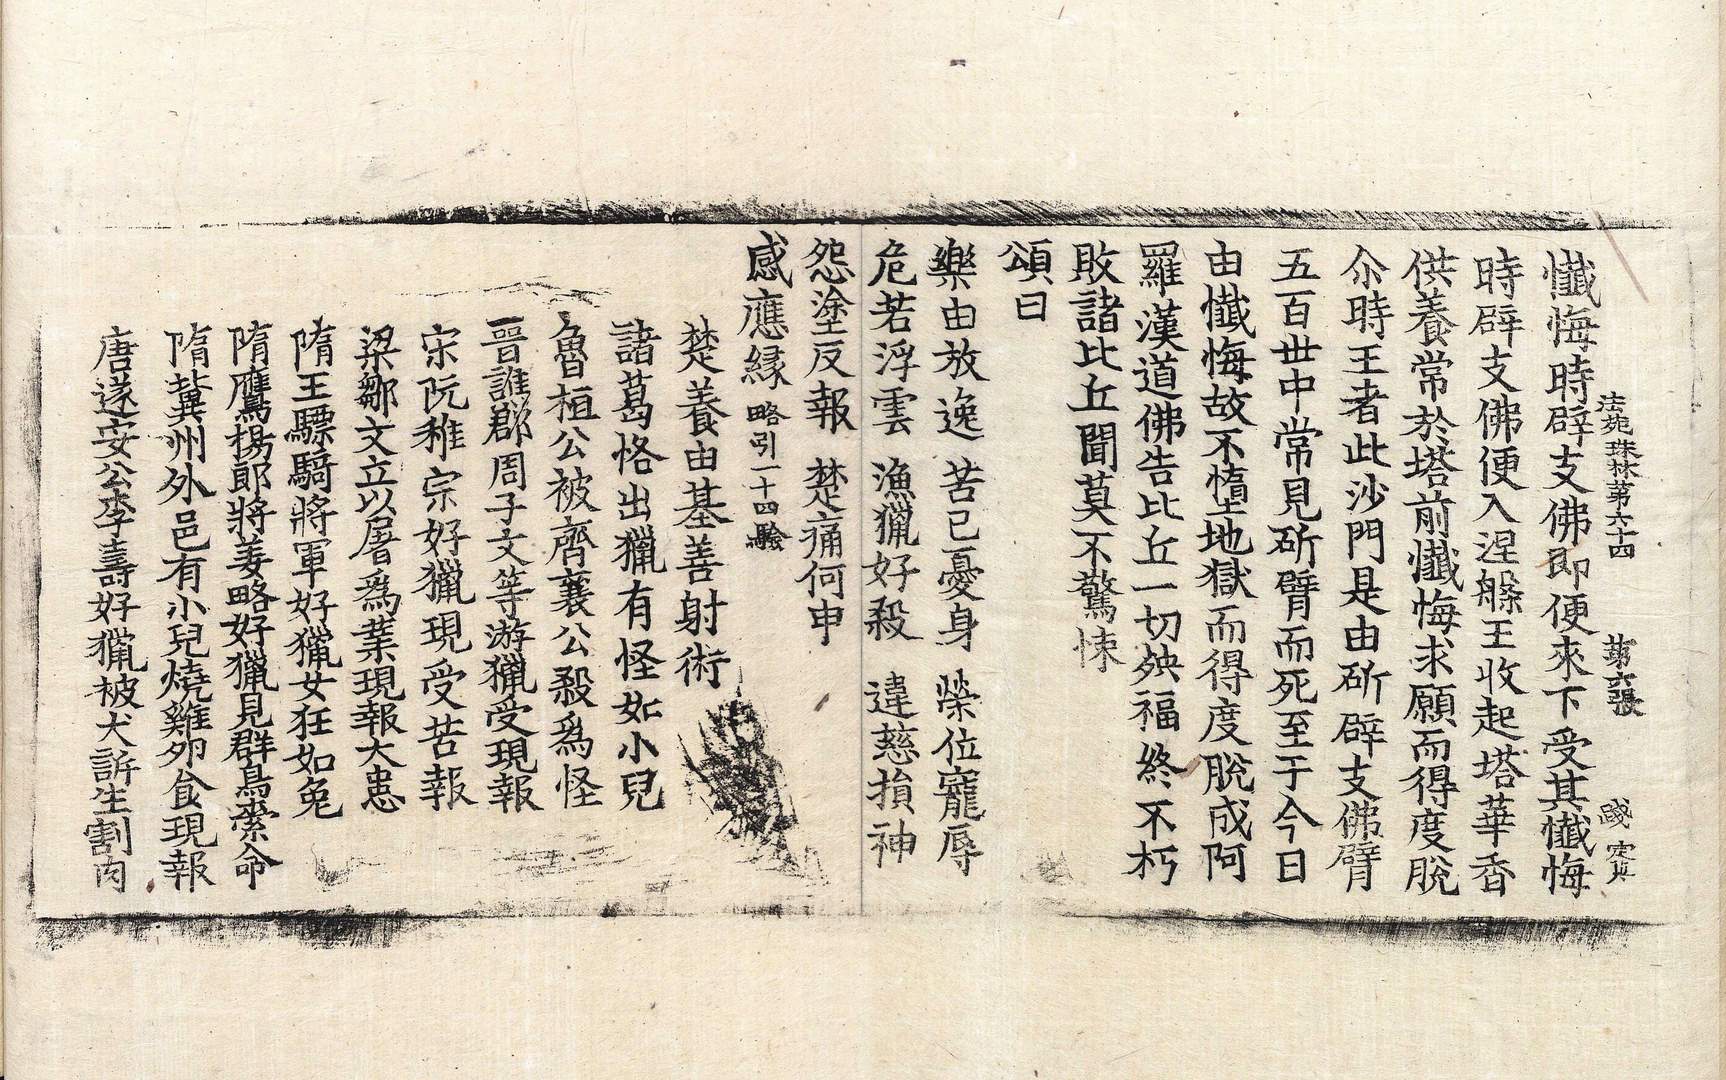 法苑珠林第六十四 第六張 踐 定其
懺悔時辟支佛即便來下受其懺悔
時辟支佛便入涅槃王收起塔華香
供養常於塔前懺悔求願而得度脫
尒時王者此沙門是由斫辟支佛臂
五百世中常見斫臂而死至于今日
由懺悔故不墮地獄而得度脫成阿
羅漢道佛告比丘一切殃福終不朽
敗諸比丘聞莫不驚悚
頌曰
樂由放逸 苦已憂身 榮位寵辱
危若浮雲 漁獵好殺 違慈損神
怨塗反報 楚痛何申
感應緣 略引一十四驗
楚養由基善射術
諸葛恪出獵有怪如小兒
魯桓公被齊襄公殺爲怪
晉譙郡周子文等游獵受現報
宋阮稚宗好獵現受苦報
梁鄒文立以屠爲業現報大患
隋王驃騎將軍好獵女狂如兔
隋鷹揚郎將姜略好獵見群鳥索命
隋冀州外邑有小兒燒雞卵食現報
唐遂安公李壽好獵被犬訴生割肉